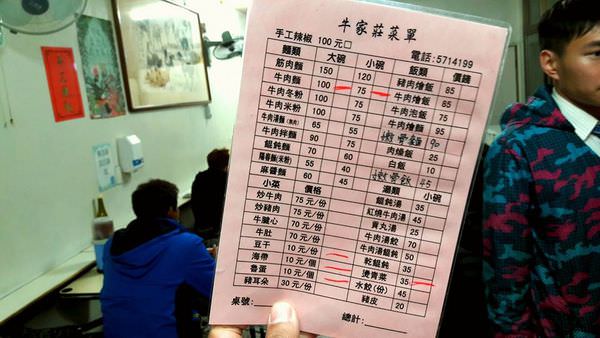 牛家莊菜單
手工辣椒 100元□ 電話:5714199
麵類 大碗 小碗 飯類 價錢
筋肉麵 150 120 豬肉燴飯 85
牛肉麵 100 75 牛肉燴飯 85
牛肉冬粉 100 75 牛肉泡飯 75
牛肉米粉 100 75 牛肉燴麵 95
牛肉湯麵(無肉) 65 55 90
牛肉拌麵 90 75 肉燥飯 25
餛飩麵 70 60 白飯 10
陽春麵(米粉) 55 40 45
麻醬麵 60 45 湯類 小碗
小菜 價格 餛飩湯 35
炒牛肉 75元/份 紅燒牛肉湯 45
炒豬肉 75元/份 貢丸湯 25
牛腱心 70元/份 牛肉湯餃 70
牛肚 70元/份 牛肉湯餛飩 50
豆干 10元/份 乾餛飩 35
海帶 10元/份 燙青菜 35
魯蛋 10元/個 水餃(份) 45
豬耳朵 30元/份 豬皮 20
桌號: 總計: